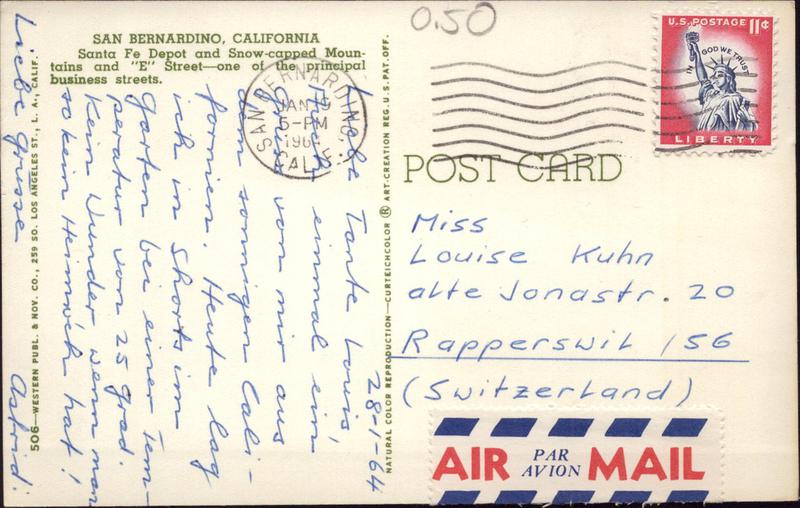 SAN BERNARDINO, CALIFORNIA
Santa Fe Depot and Snow-capped Moun-
tains and "E" Street—one of the principal
business streets.
0.50
U.S. POSTAGE 11¢
IN GOD WE TRUST
LIBERTY
SAN BERNARDINO,
JAN
5-PM
CALIF.
POST CARD
28-1-64
Liebe Tante Louis,
einmal ein
von mir aus
dem sonnigen Cali-
fornien. Heute lag
ich in Shorts im
Garten bei einer Tem-
peratur von 25 grad.
Kein Wunder wenn man
so kein Heimweh hat!
Liebe Grüsse
Astrid.
506—WESTERN PUBL. & NOV. CO., 259 SO. LOS ANGELES ST., L. A., CALIF.
NATURAL COLOR REPRODUCTION—CURTEICHCOLOR ® ART-CREATION REG. U.S. PAT. OFF.
Miss
Louise Kuhn
alte Jonastr. 20
Rapperswil / SG
(Switzerland)
AIR PAR AVION MAIL